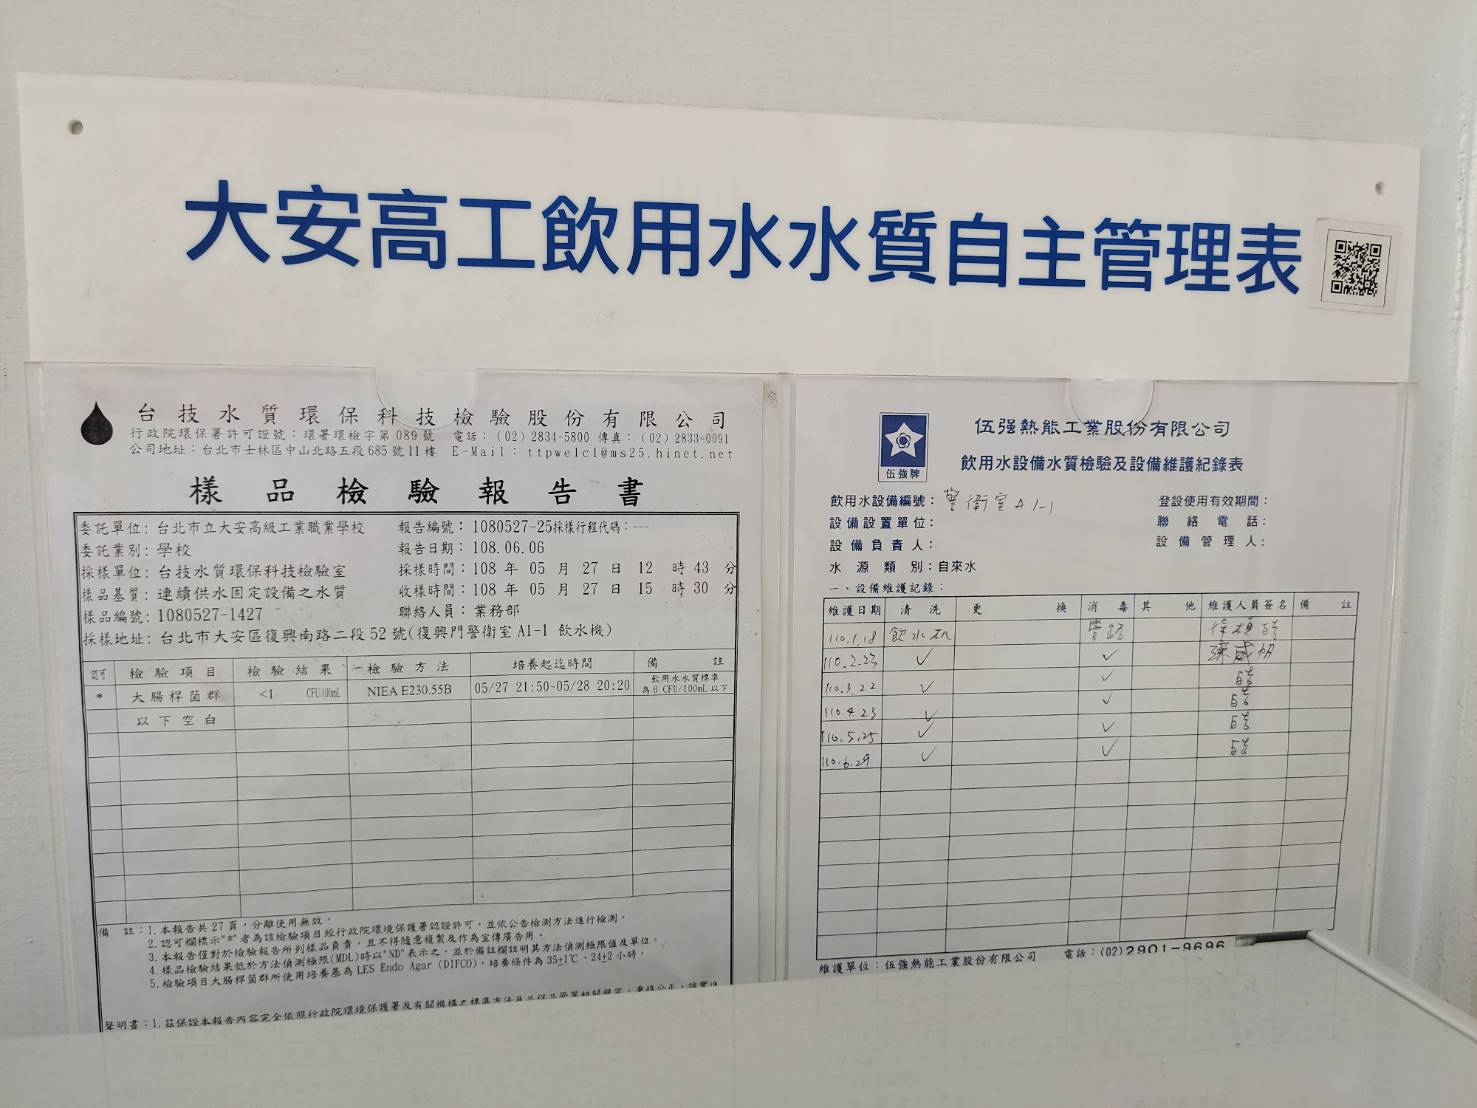 大安高工飲用水水質自主管理表
台技水質環保科技檢驗股份有限公司
行政院環保署許可證號：環署環檢字第089號 電話：(02)2834-5800 傳真：(02)2833-0091
公司地址：台北市士林區中山北路五段685號11樓 E-Mail：ttpwelcl@ms25.hinet.net
樣品檢驗報告書
委託單位：台北市立大安高級工業職業學校 報告編號：1080527-25採樣行程代碼：---
委託業別：學校 報告日期：108.06.06
採樣單位：台技水質環保科技檢驗室 採樣時間：108 年 05 月 27 日 12 時 43 分
樣品基質：連續供水固定設備之水質 收樣時間：108 年 05 月 27 日 15 時 30 分
樣品編號：1080527-1427 聯絡人員：業務部
採樣地址：台北市大安區復興南路二段52號(復興門警衛室A1-1 飲水機)
認可 檢驗項目 檢驗結果 檢驗方法 培養起迄時間 備註
* 大腸桿菌群 <1 CFU/100mL NIEA E230.55B 05/27 21:50-05/28 20:20 飲用水水質標準
為6 CFU/100mL以下
以下空白
備 註：1.本報告共27頁，分離使用無效。
2.認可欄標示"*"者為該檢驗項目經行政院環境保護署認證許可，並依公告檢測方法進行檢測。
3.本報告僅對於檢驗報告所列樣品負責，且不得隨意複製及作為宣傳廣告用。
4.樣品檢驗結果低於方法偵測極限(MDL)時以"ND"表示之，並於備註欄註明其方法偵測極限值及單位。
5.檢驗項目大腸桿菌群所使用培養基為LES Endo Agar (DIFCO)，培養條件為35±1℃，24±2小時。
聲明書：1.茲保證本報告內容完全依照行政院環境保護署及有關機構之標準方法及品保品管等相關規定，秉持公正、誠實進
伍強牌
伍强熱能工業股份有限公司
飲用水設備水質檢驗及設備維護紀錄表
飲用水設備編號：警衛室A1-1 登設使用有效期間：
設備設置單位： 聯絡電話：
設備負責人： 設備管理人：
水源類別：自來水
一、設備維護記錄：
維護日期 清洗 更換 消毒 其他 維護人員簽名 備註
110.1.18 飲水机 管路
110.2.23 ✓ ✓
110.3.22 ✓ ✓
110.4.23 ✓ ✓
110.5.25 ✓ ✓
110.6.29 ✓ ✓
維護單位：伍強熱能工業股份有限公司 電話：(02)2901-9696